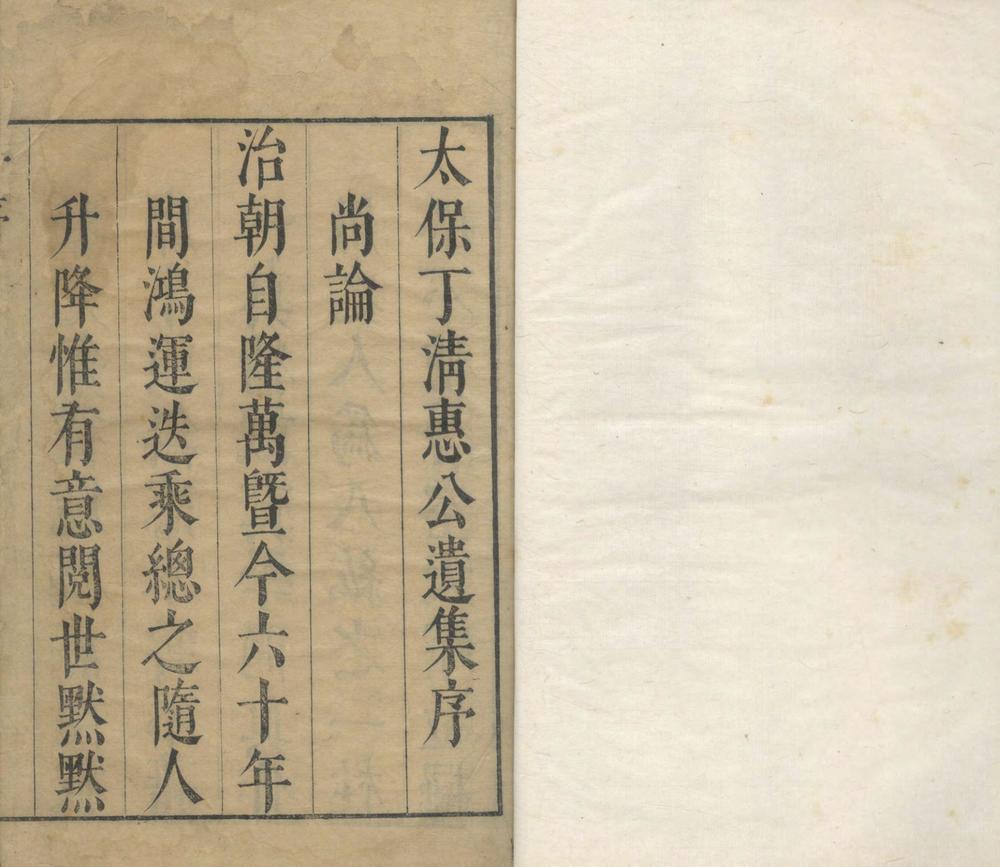 太保丁清惠公遺集序
尚論
治朝自隆萬暨今六十年
間鴻運迭乘總之隨人
升降惟有意閱世默默